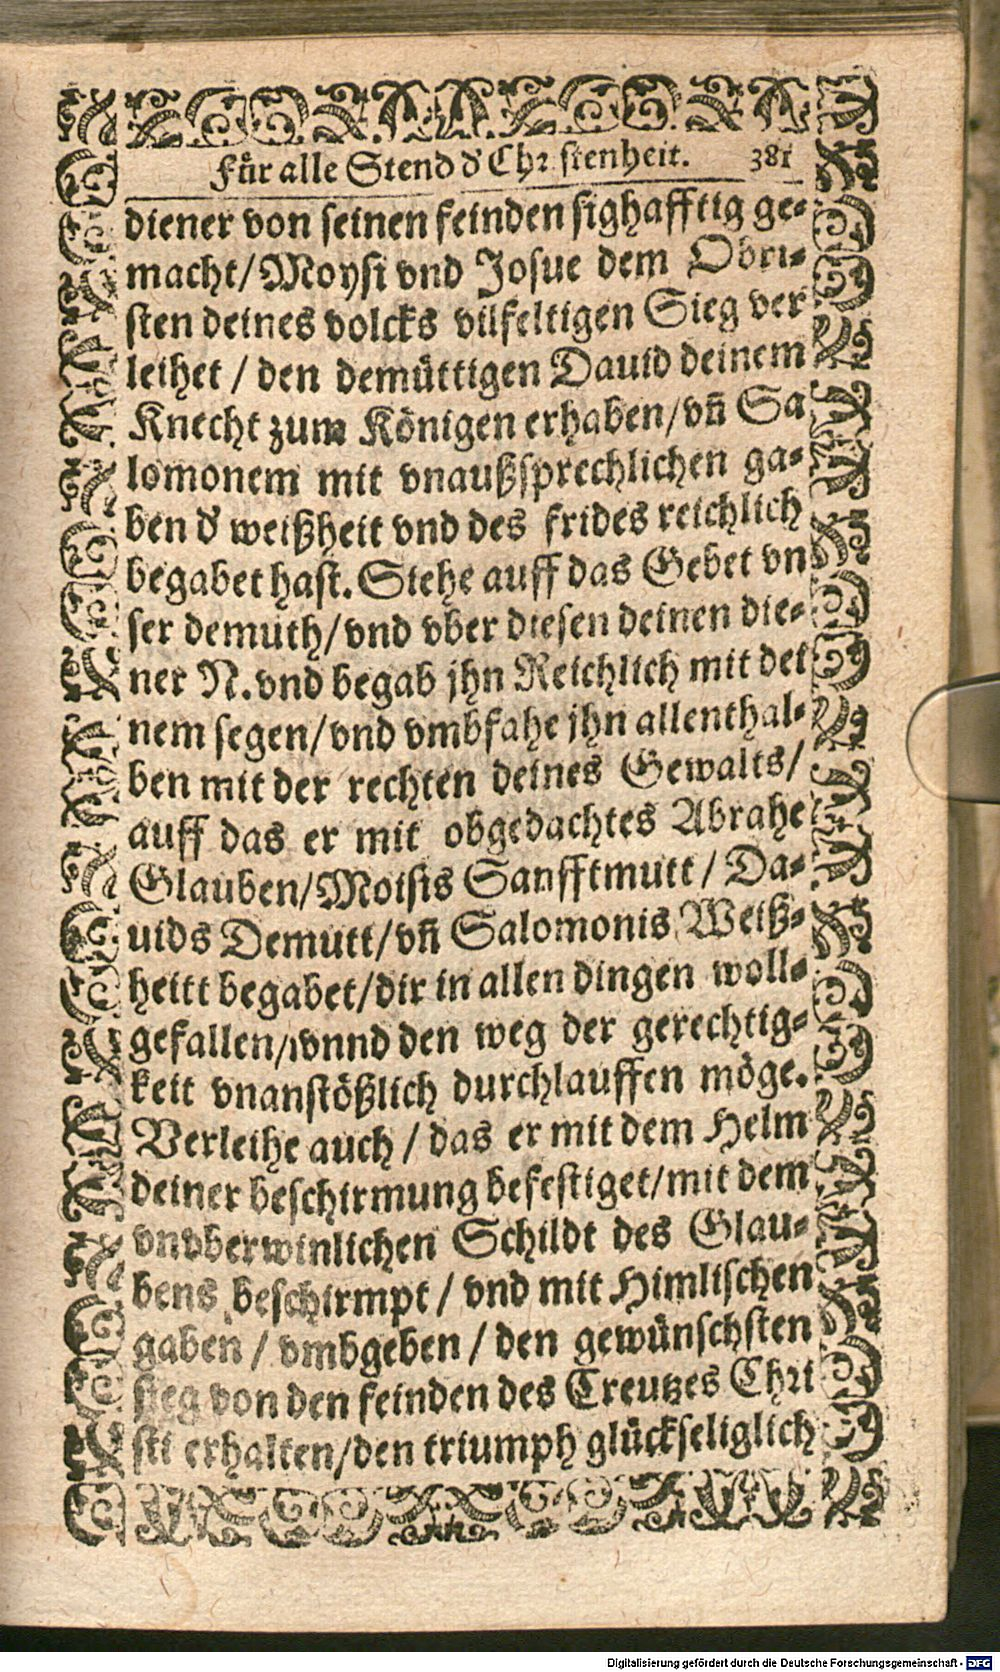 Für alle Stend d' Christenheit. 381
diener von seinen feinden sighafftig ge-
macht/ Moysi vnd Josue dem Obri-
sten deines volcks vilfeltigen Sieg ver
leihet / den demüttigen Dauid deinem
Knecht zum Königen erhaben/ vñ Sa
lomonem mit vnaußsprechlichen ga-
ben d' weißheit vnd des frides reichlich
begabet hast. Siehe auff das Gebet vn
ser demuth/ vnd vber diesen deinen die-
ner N. vnd begab jhn Reichlich mit dei
nem segen/ vnd vmbfahe jhn allenthal-
ben mit der rechten deines Gewalts/
auff das er mit obgedachtes Abrahe
Glauben/ Moisis Sanfftmutt / Da-
uids Demutt/ vñ Salomonis Weiß-
heitt begabet/ dir in allen dingen woll-
gefallen/ vnnd den weg der gerechtig-
keit vnanstößlich durchlauffen möge.
Verleihe auch / das er mit dem Helm
deiner beschirmung befestiget/ mit dem
vnvberwinlichen Schildt des Glau-
bens beschirmpt / vnd mit Himlischen
gaben / vmbgeben / den gewünschsten
sieg von den feinden des Creutzes Chri
sti erhalten/ den triumph glückseliglich
Digitalisierung gefördert durch die Deutsche Forschungsgemeinschaft - DFG